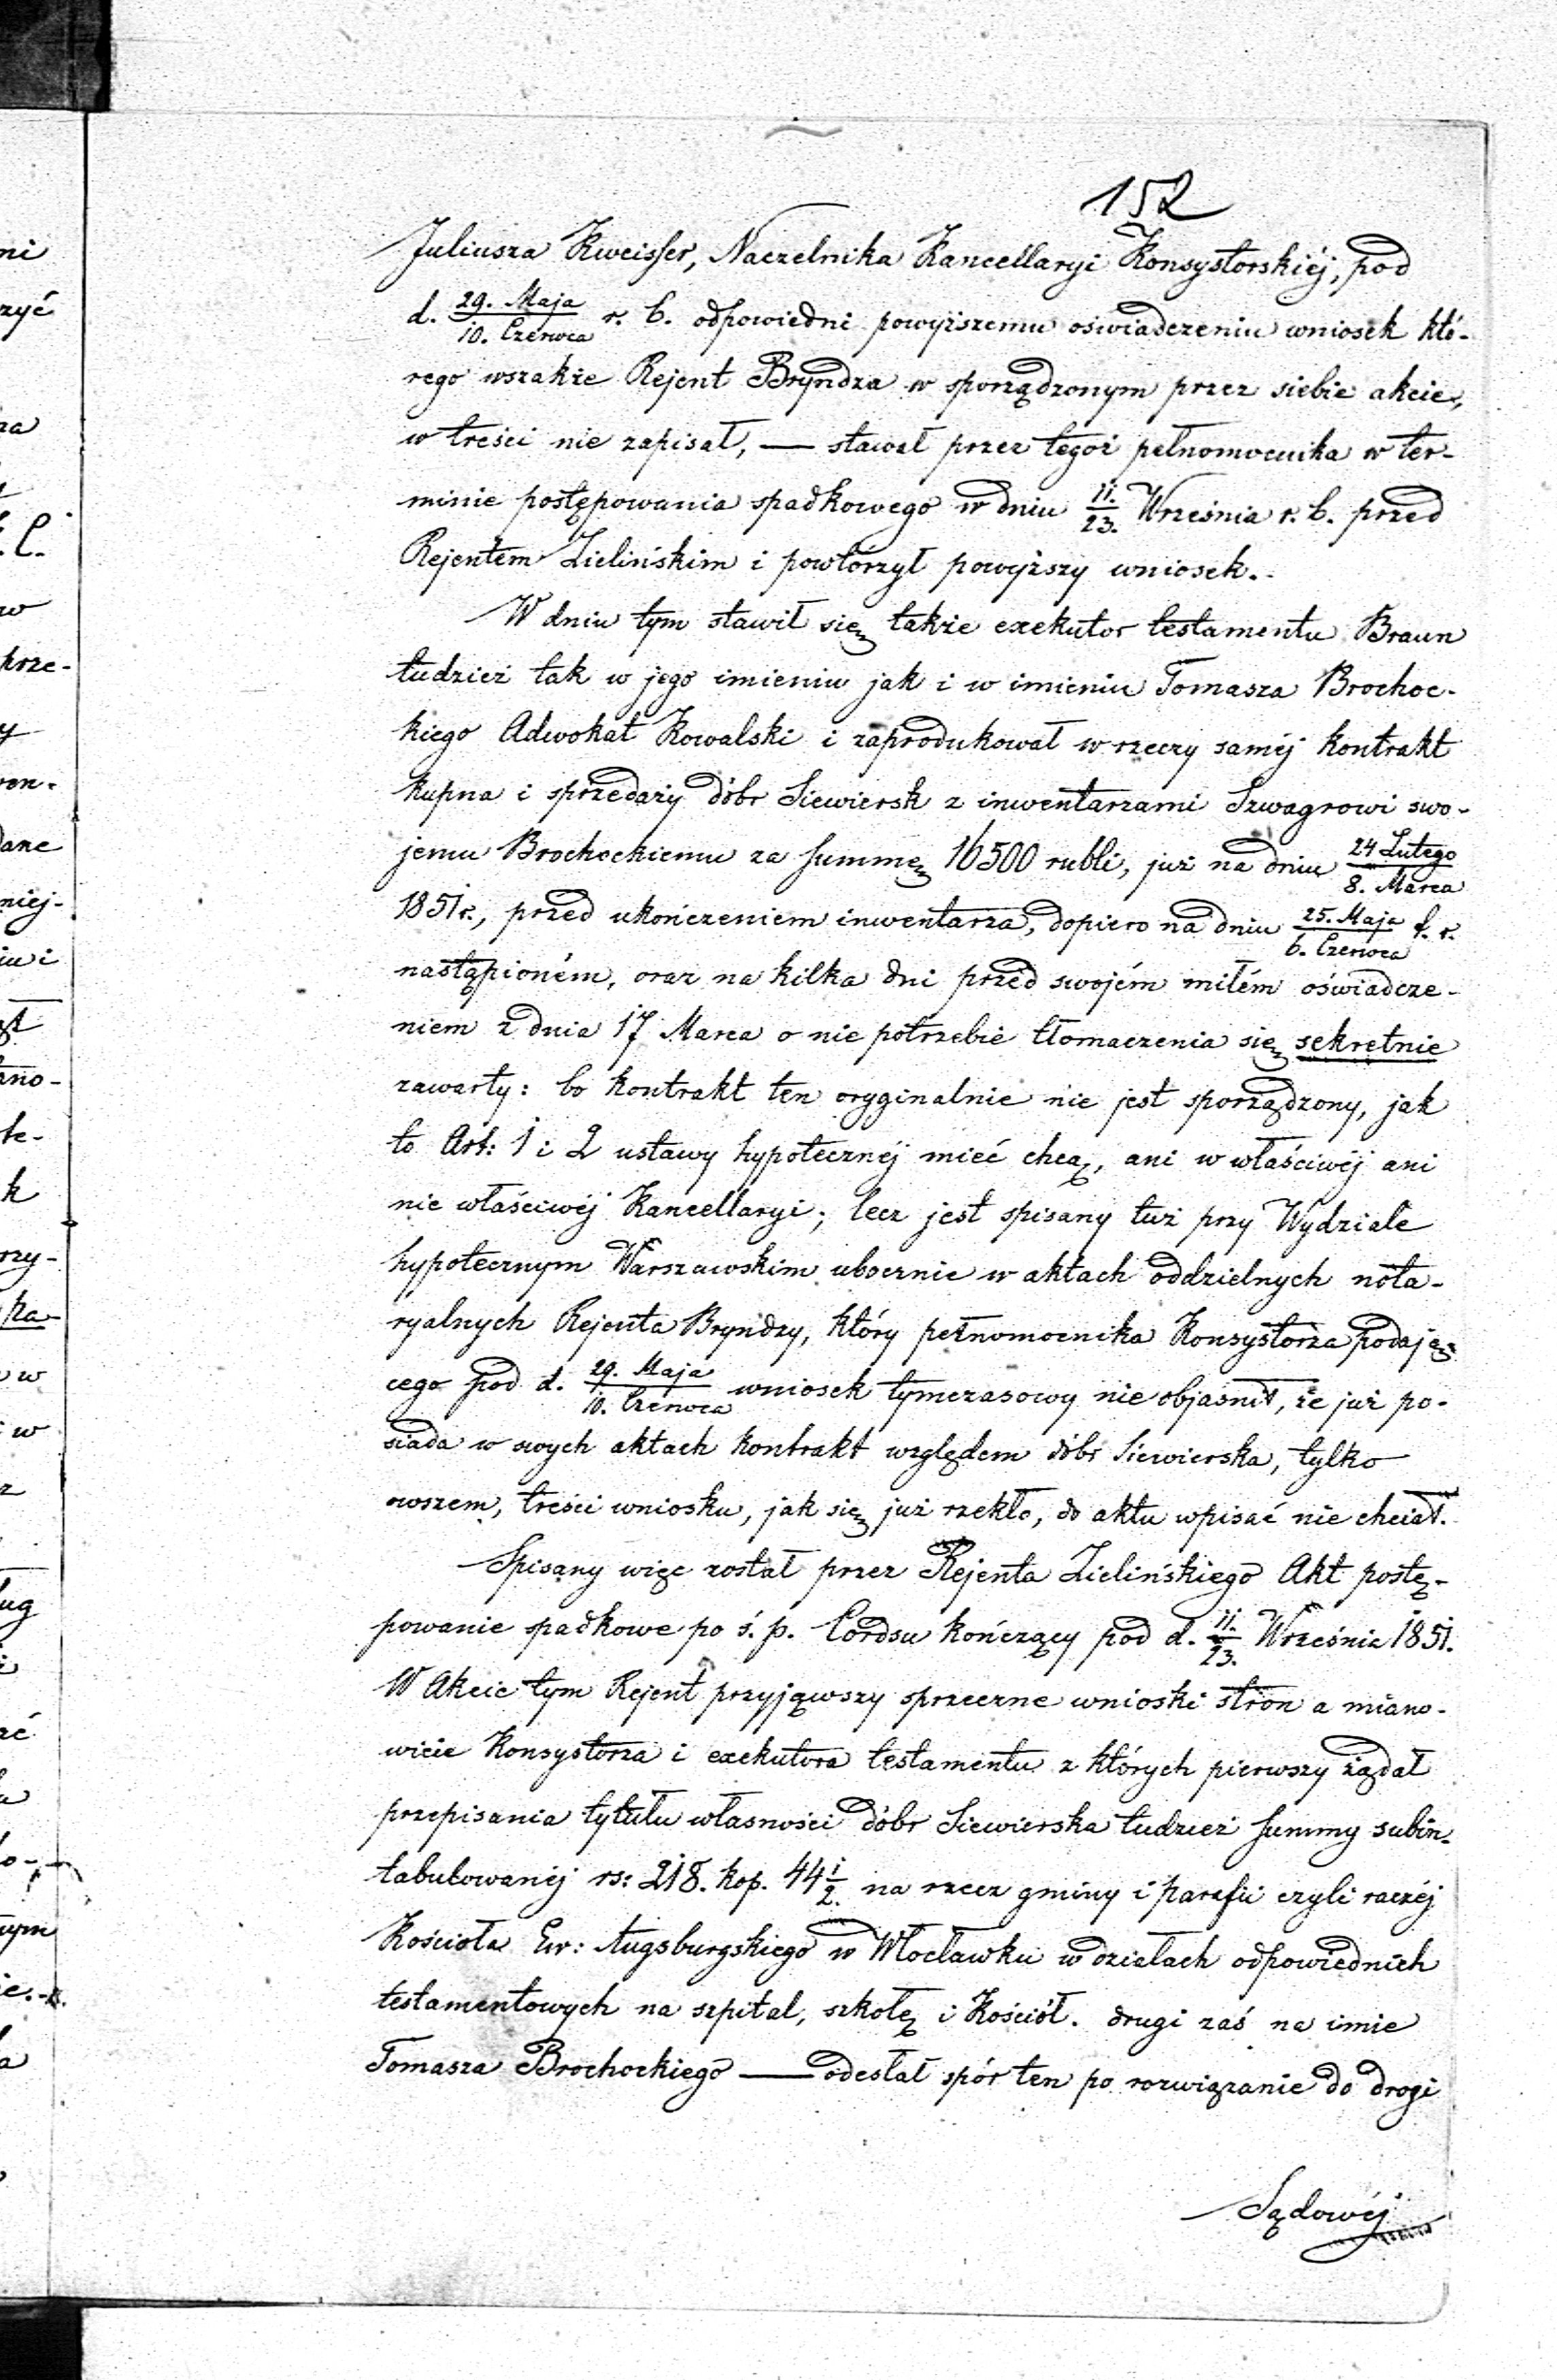 152
Juliusza Kweisser, Naczelnika Kancellaryi Konsystorskiéj, pod
d. 29. Maja / 10. Czerwca r. b. odpowiedni powyższemu oświadczeniu wniosek któ-
rego wszakże Rejent Bryndza w sporządzonym przez siebie akcie,
w treści nie zapisał, — stawał przez tegoż pełnomocnika w ter-
minie postępowania spadkowego w dniu 11./23. Września r. b. przed
Rejentem Zielińskim i powtórzył powyższy wniosek.
W dniu tym stawił się także exekutor testamentu Braun
tudzież tak w jego imieniu jak i w imieniu Tomasza Brochoc-
kiego Adwokat Kowalski i zaprodukował w rzeczy saméj kontrakt
kupna i sprzedaży dóbr Siewiersk z inwentarzami Szwagrowi swo-
jemu Brochockiemu za summę 16500 rubli, już na dniu 24 Lutego / 8. Marca
1851 r., przed ukończeniem inwentarza, dopiero na dniu 25. Maja / 6. Czerwca t. r.
nastąpioném, oraz na kilka dni przed swojém miłém oświadcze-
niem z dnia 17 Marca o nie potrzebie tłomaczenia się sekretnie
zawarty: bo kontrakt ten oryginalnie nie jest sporządzony, jak
to Art: 1 i 2 ustawy hypotecznéj mieć chcą, ani w właściwéj ani
nie właściwéj Kancellaryi; lecz jest spisany tuż przy Wydziale
hypotecznym Warszawskim ubocznie w aktach oddzielnych nota-
ryalnych Rejenta Bryndzy, który pełnomocnika Konsystorza podają-
cego pod d. 29. Maja / 10. Czerwca wniosek tymczasowy nie objasnił, że już po-
siada w swych aktach kontrakt względem dóbr Siewierska, tylko
owszem, treści wniosku, jak się już rzekło, do aktu wpisać nie chciał.
Spisany więc został przez Rejenta Zielińskiego Akt postę-
powanie spadkowe po ś. p. Cordsu kończący pod d. 11./23. Września 1851.
W Akcie tym Rejent przyjąwszy sprzeczne wnioski stron a miano-
wicie Konsystorza i exekutora testamentu z których pierwszy żądał
przepisania tytułu własności dóbr Siewierska tudzież summy subin-
tabulowanéj rs: 218. kop. 44 1/2. na rzecz gminy i parafii czyli raczéj
Kościoła Ew: Augsburgskiego w Włocławku w działach odpowiednich
testamentowych na szpital, szkołę i Kościół. drugi zaś na imie
Tomasza Brochockiego — odesłał spór ten po rozwiązanie do drogi
Sądowéj